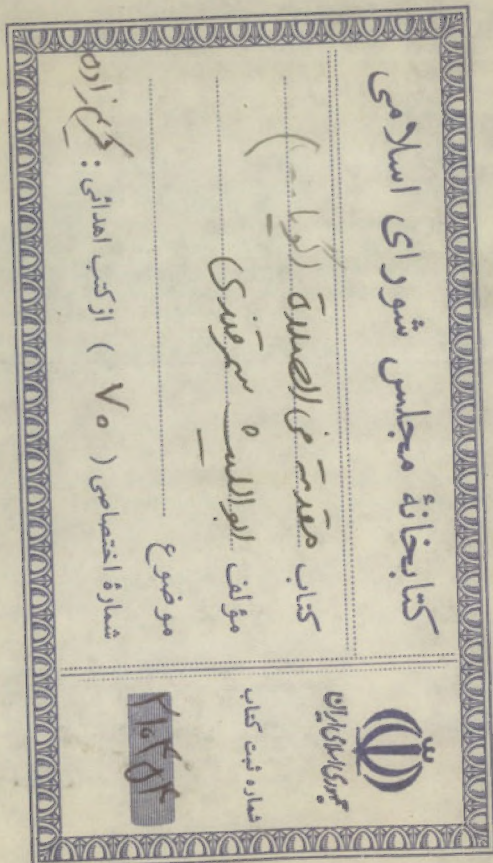 کتابخانهٔ مجلس شورای اسلامی
کتاب مقدمة فی الصلاة
مؤلف ابواللیث سمرقندی
موضوع
شمارهٔ اختصاصی ( ۷۰ ) از کتب اهدائی :
جمهوری اسلامی ایران
شماره ثبت کتاب